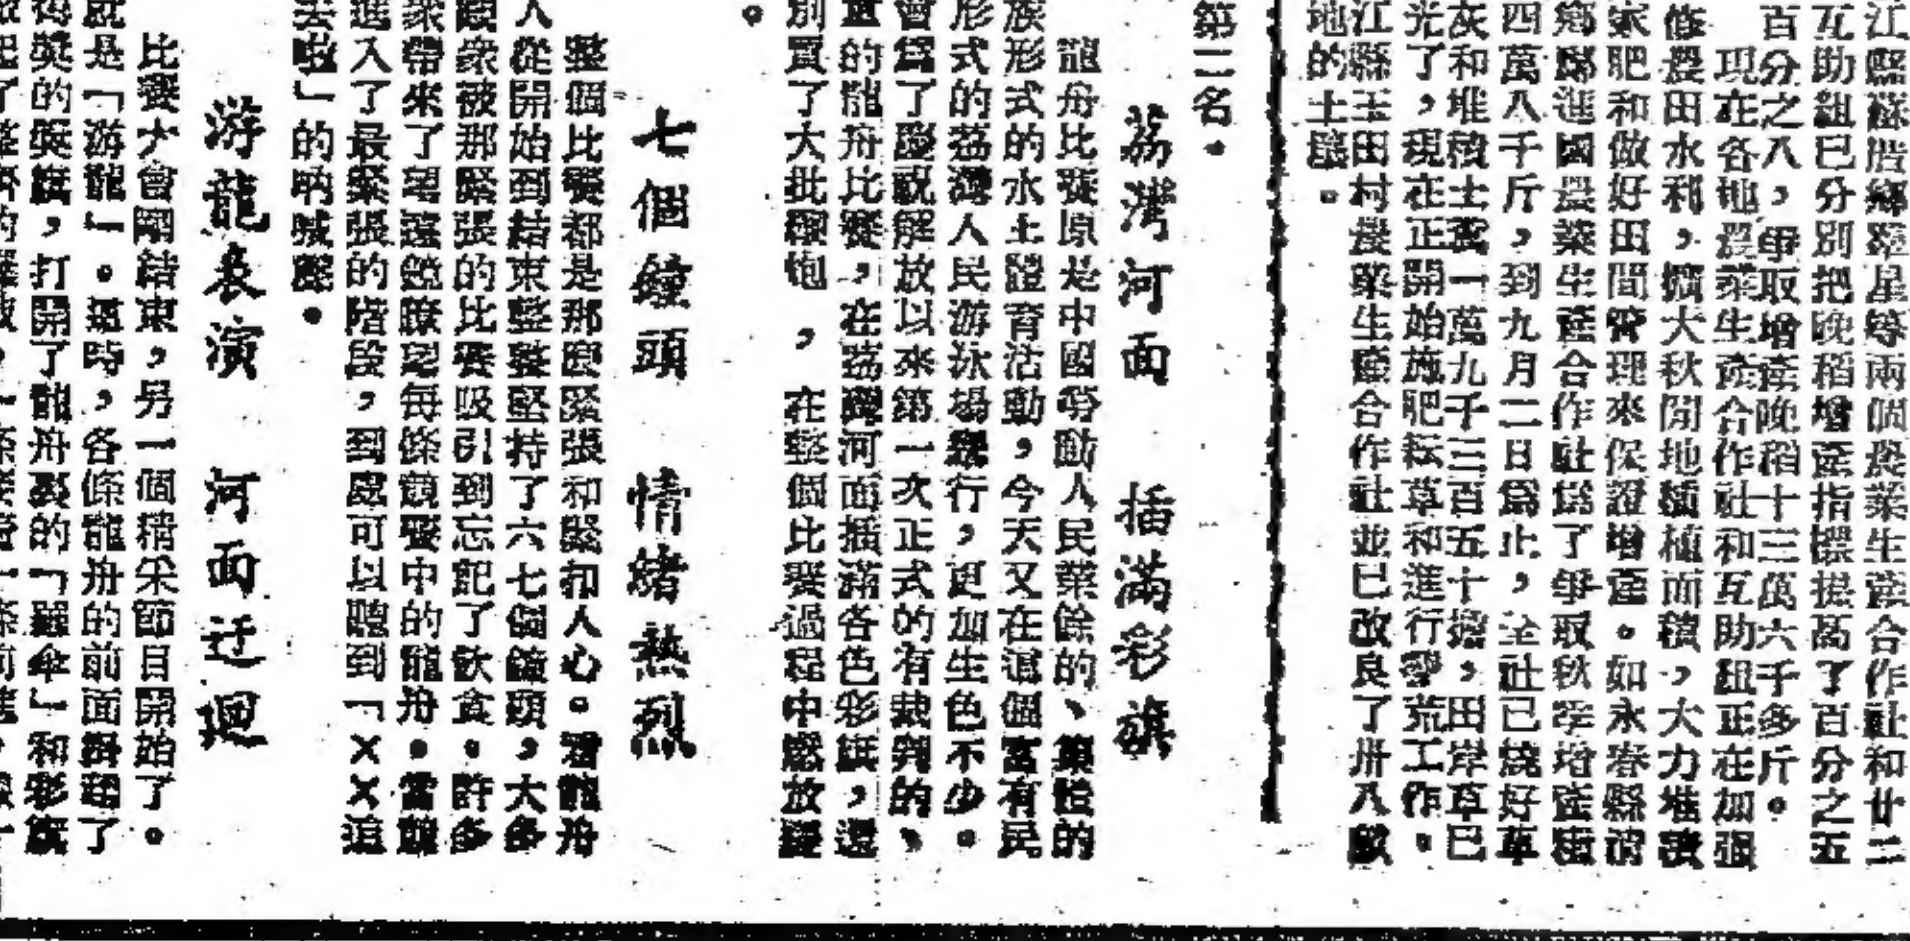 江縣蘇厝鄉羣星等兩個農業生產合作社和廿二
互助組已分別把晚稻增產指標提高了百分之五
百分之八，爭取增產晚稻十三萬六千多斤。
現在各地農業生產合作社和互助組正在加強
修農田水利，擴大秋閒地播植面積，大力堆積
家肥和做好田間管理來保證增產。如永春縣
鄉歸進國農業生產合作社爲了爭取秋季增產
四萬八千斤，到九月二日爲止，全社已燒好草
灰和堆積土糞一萬九千三百五十擔，田岸草已
光了，現在正開始施肥耘草和進行墾荒工作。
江縣玉田村農業生產合作社並已改良了卅八畝
地的土壤。
第二名。
荔灣河面　插滿彩旗
龍舟比賽原是中國勞動人民業餘的、集體的
族形式的水上體育活動，今天又在這個富有民
形式的荔灣人民游泳場舉行，更加生色不少。
會爲了慶祝解放以來第一次正式的有裁判的、
重的龍舟比賽，在荔灣河面插滿各色彩旗，還
別買了大批爆炮，在整個比賽過程中燃放護
。
七個鐘頭　情緒熱烈
整個比賽都是那麽緊張和緊扣人心。看龍舟
人從開始到結束整整堅持了六七個鐘頭，大多
觀衆被那緊張的比賽吸引到忘記了飲食。許多
衆帶來了望遠鏡瞭望每條競賽中的龍舟。當龍
進入了最緊張的階段，到處可以聽到「××追
去啦」的吶喊聲。
游龍表演　河面迂迴
比賽大會剛結束，另一個精采節目開始了。
就是「游龍」。這時，各條龍舟的前面掛起了
得獎的獎旗，打開了龍舟裏的「羅傘」和彩旗